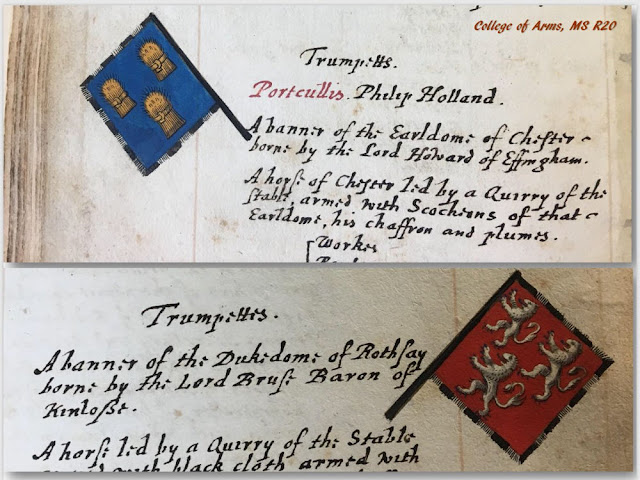 College of Arms, MS R20
Trumpetts.
Portcullis. Philip Holland.
A banner of the Earldome of Chester
borne by the Lord Howard of Effingham.
A horse of Chester led by a Quirry of the
stable, armed with Scocheons of that
Earldome, his chaffron and plumes.
Workes
Trumpettes.
A banner of the Dukedome of Rothsay
borne by the Lord Bruse Baron of
Kinlosse.
A horse led by a Quirry of the Stable
with black cloth, armed with